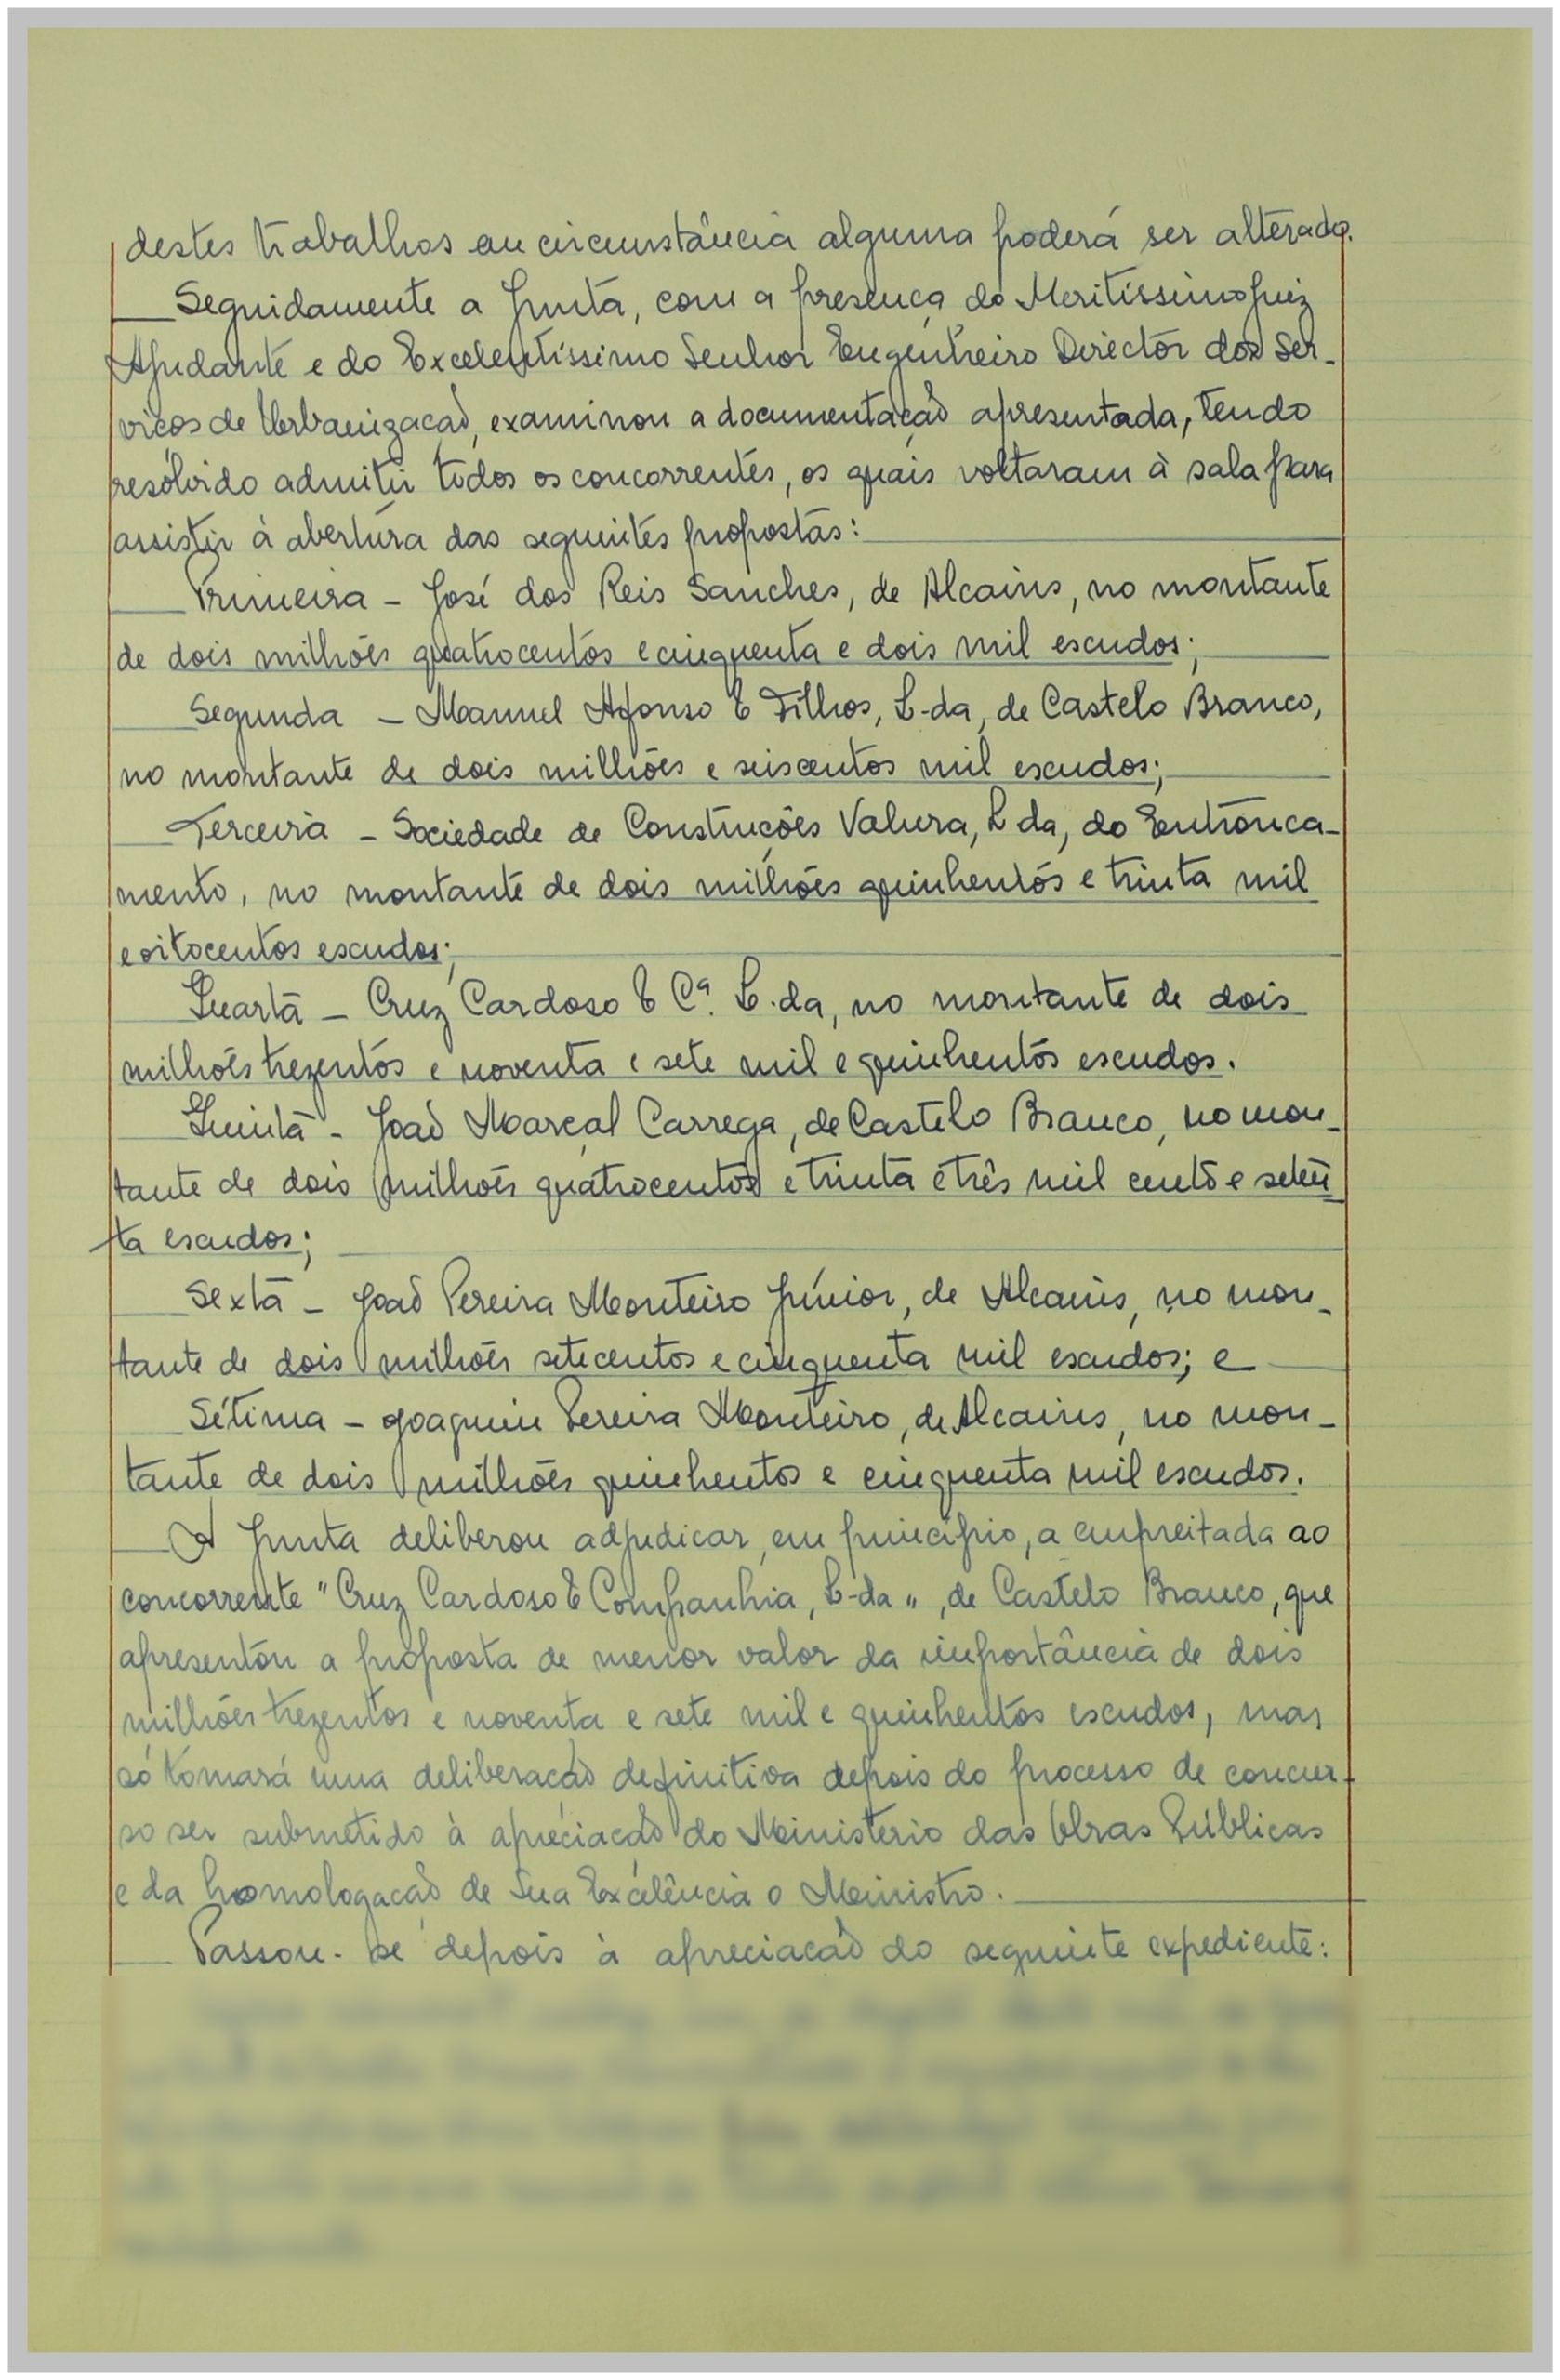 destes trabalhos em circunstância alguma poderá ser alterado.
Seguidamente a Junta, com a presença do Meritíssimo Juiz
Ajudante e do Excelentíssimo Senhor Engenheiro Director dos Ser-
viços de Urbanização, examinou a documentação apresentada, tendo
resólvido admitir todos os concorrentes, os quais voltaram à sala para
assistir à abertura das seguintes propostas:
Primeira - José dos Reis Sanches, de Alcains, no montante
de dois milhões quatrocentos e cinquenta e dois mil escudos;
Segunda - Manuel Afonso & Filhos, L-da, de Castelo Branco,
no montante de dois milhões e seiscentos mil escudos;
Terceira - Sociedade de Construções Valura, L da, do Entronca-
mento, no montante de dois milhões quinhentos e trinta mil
e oitocentos escudos;
Quarta - Cruz Cardoso & Cª. L.da, no montante de dois
milhões trezentos e noventa e sete mil e quinhentos escudos.
Quinta - João Marçal Carrega, de Castelo Branco, no mon-
tante de dois milhões quatrocentos e trinta e três mil cento e seten
ta escudos;
Sexta - João Pereira Monteiro Júnior, de Alcains, no mon-
tante de dois milhões setecentos e cinquenta mil escudos; e
Sétima - Joaquim Pereira Monteiro, de Alcains, no mon-
tante de dois milhões quinhentos e cinquenta mil escudos.
A Junta deliberou adjudicar, em princípio, a empreitada ao
concorrente "Cruz Cardoso & Companhia, L-da", de Castelo Branco, que
apresentou a proposta de menor valor da importância de dois
milhões trezentos e noventa e sete mil e quinhentos escudos, mas
só tomará uma deliberação definitiva depois do processo de concur-
so ser submetido à apreciação do Ministerio das Obras Públicas
e da homologação de Sua Excelência o Ministro.
Passou-se depois à apreciação do seguinte expediente: